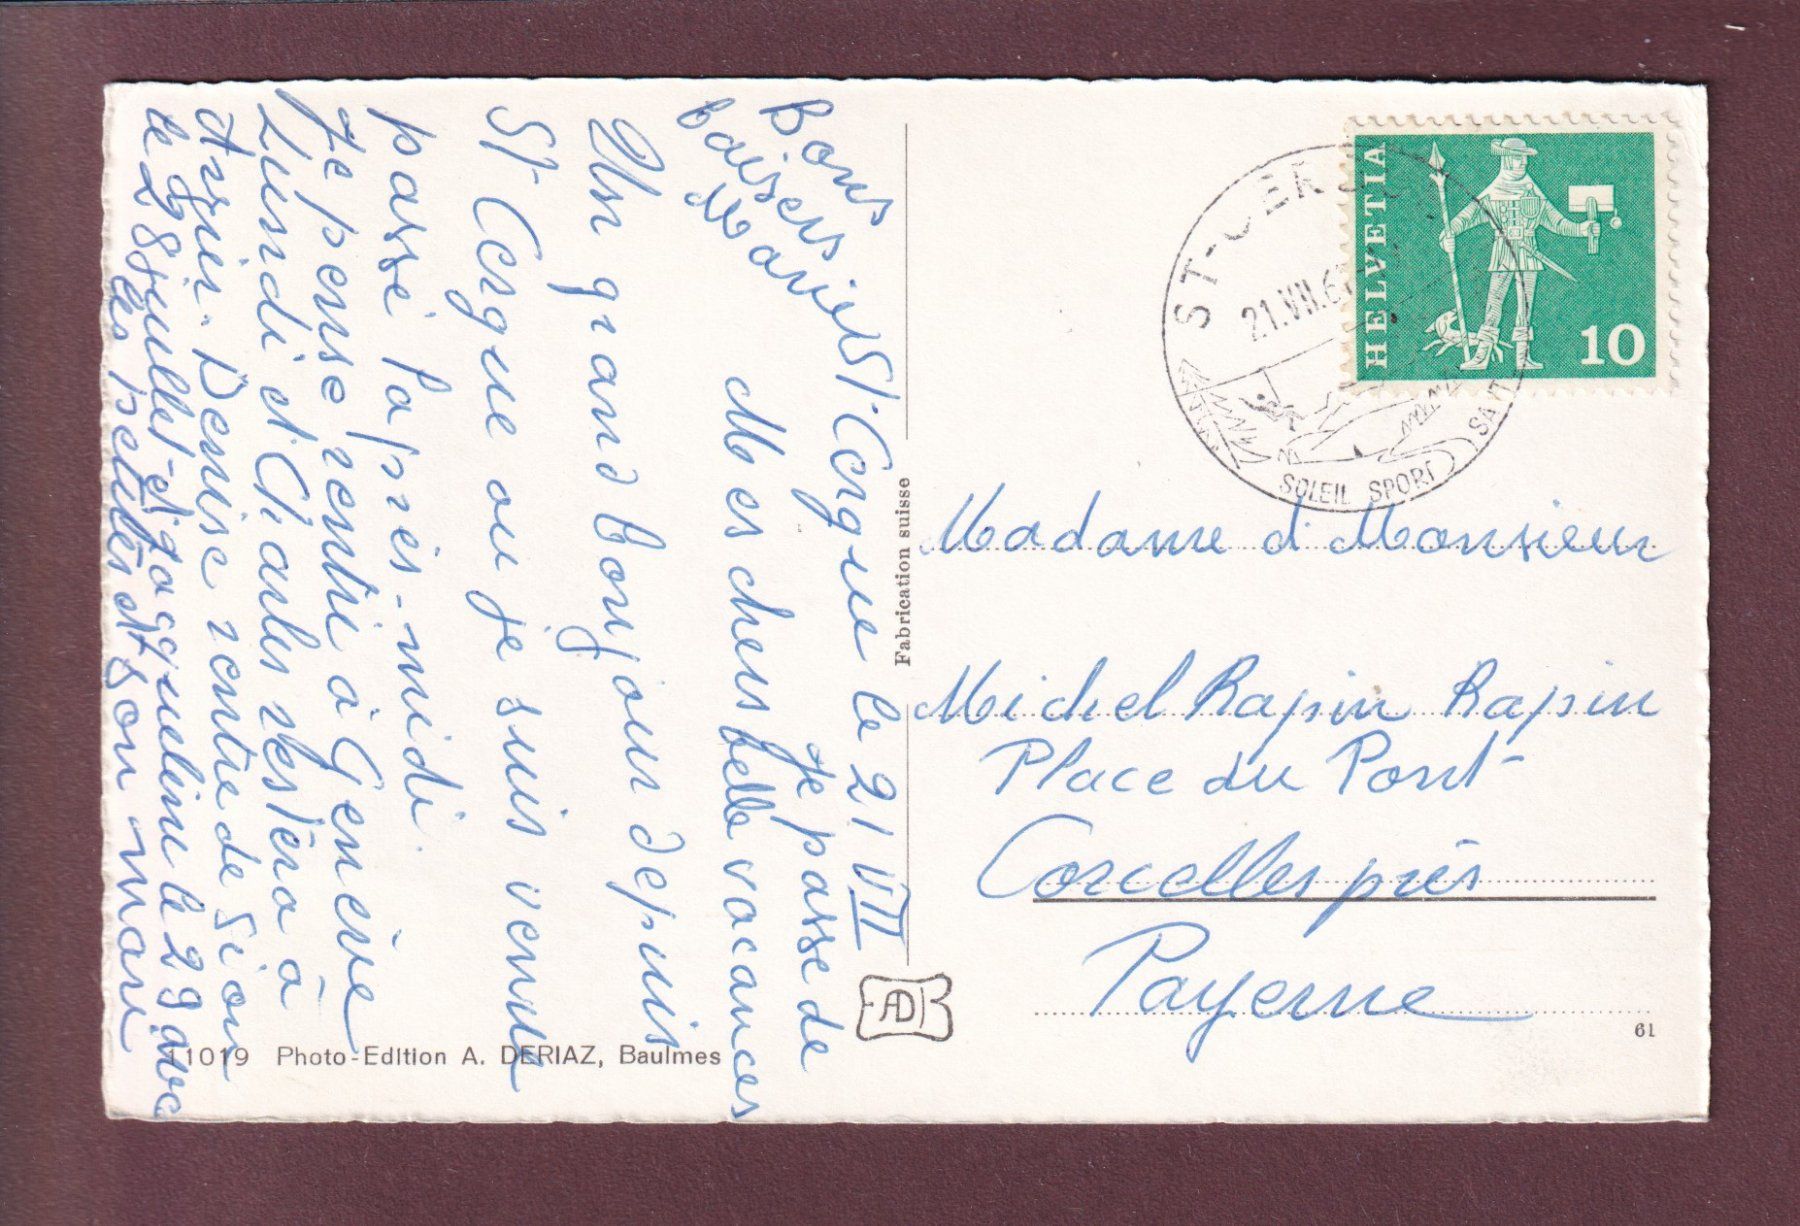 St. Cergue le 21 VII
Je passe de
Mes chers belle vacances
Un grand bonjour depuis
St Cergue ou je suis venu
passé l'après-midi.
Je pense rentré à Genève
Lundi et Charles restera à
Arzier. Denise rentre de Sion
le 28 Juillet et Jacqueline le 29 avec
les petites et son mari
Bons
baisers
Marie
Fabrication suisse
11019 Photo-Edition A. DERIAZ, Baulmes
AD
HELVETIA
10
ST-CERGUE
21.VII.6
SOLEIL SPORT
Madame et Monsieur
Michel Rapin Rapin
Place du Pont
Corcelles près
Payerne
61